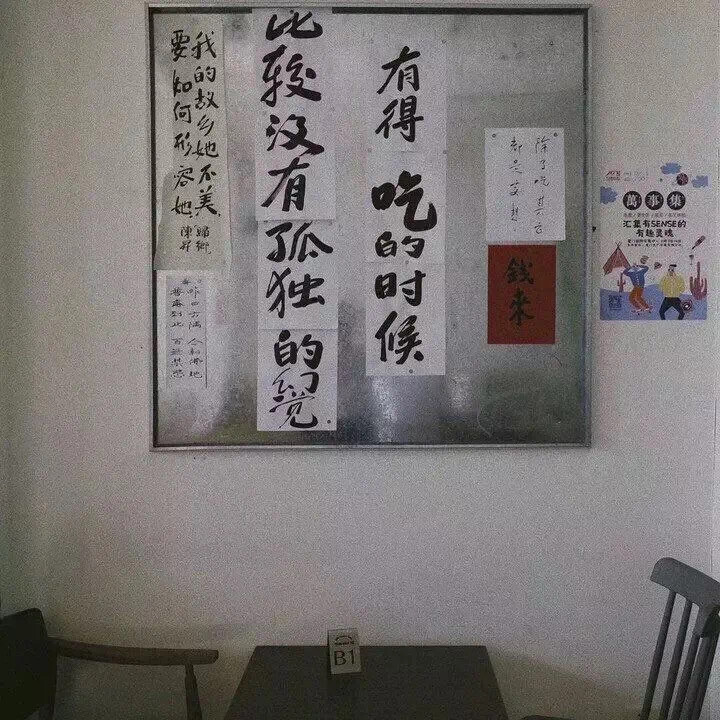 有得
吃的时候
比较没有孤独
的幻觉
我的故乡她不美
要如何形容她
歸鄉
陳昇
除了吃其它
都是妄想
錢来
萬事集
汇集有SENSE的
有趣灵魂
B1